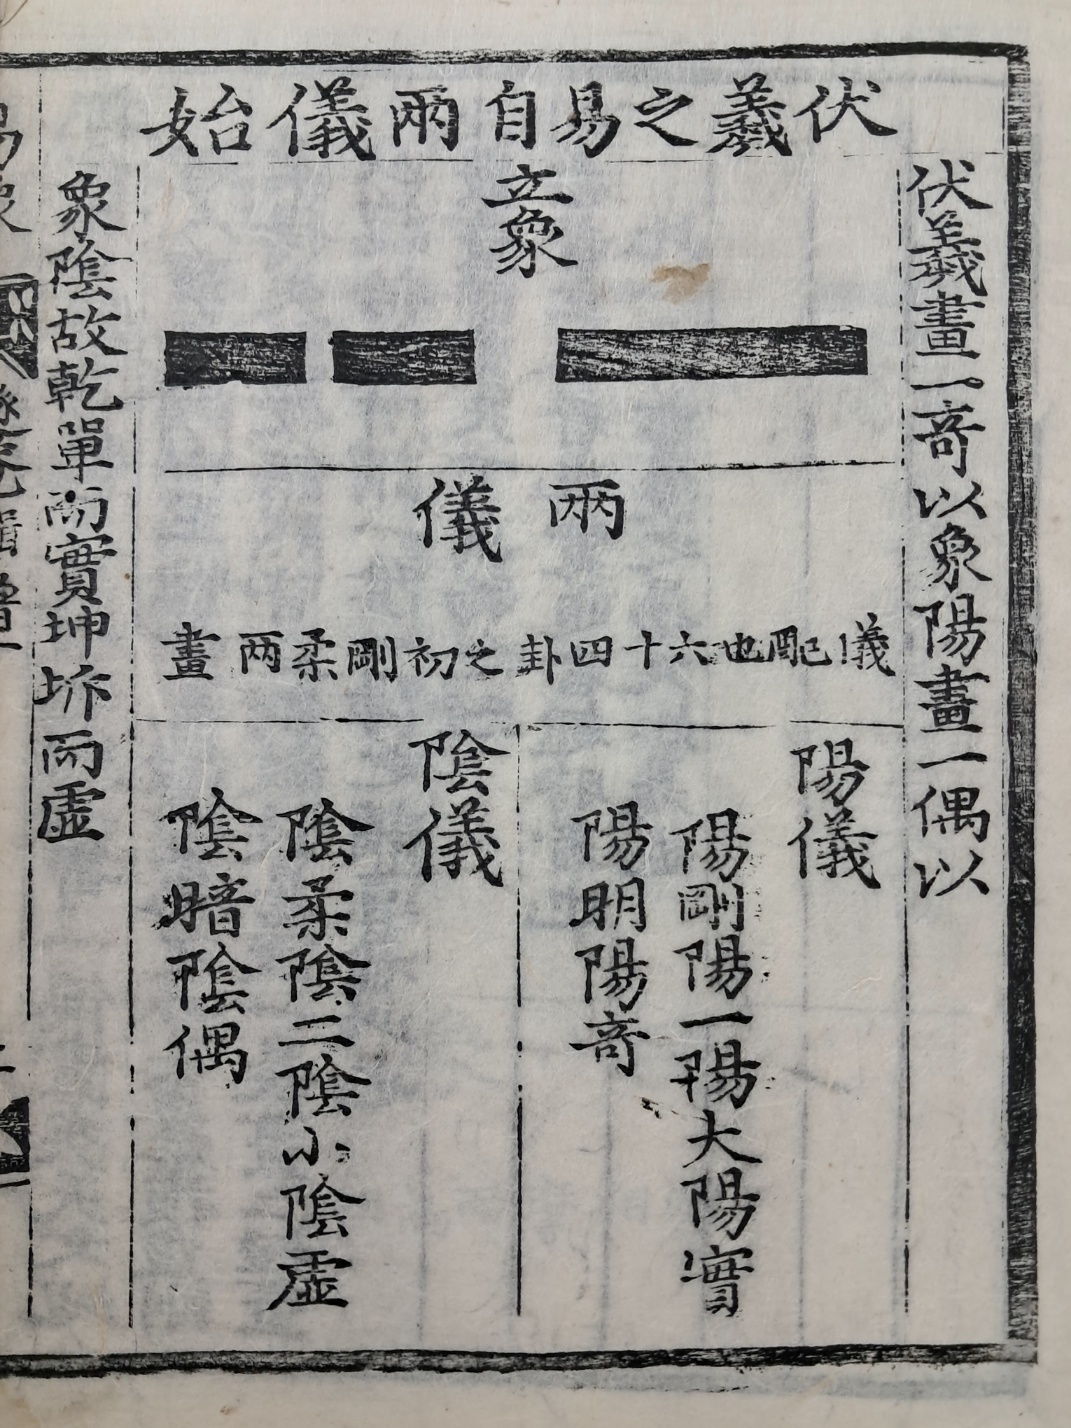 伏羲之易自兩儀始
伏羲畫一奇以象陽畫一偶以
立象
兩儀
儀配也六十四卦之初剛柔两畫
陽儀
陽剛陽一陽大陽實
陽明陽奇
陰儀
陰柔陰二陰小陰虛
陰暗陰偶
象陰故乾單而實坤坼而虛